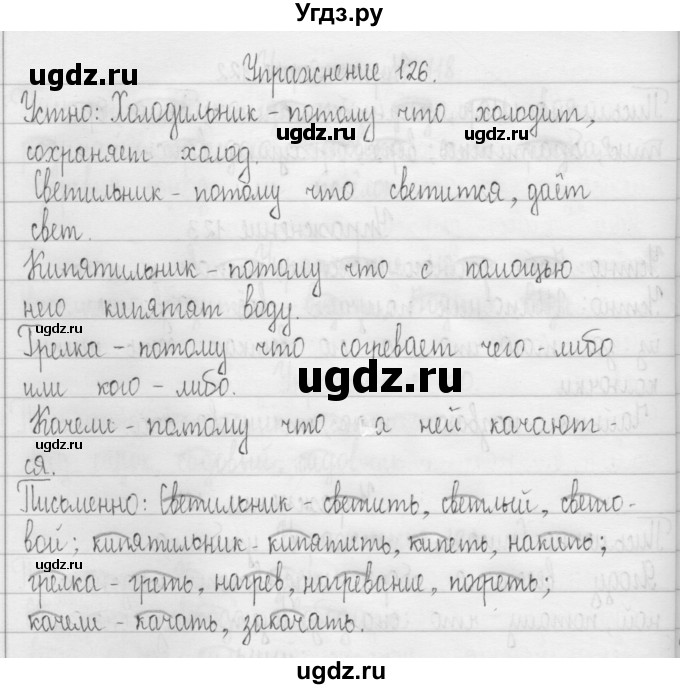 Угдз.ру
Упражнение 126.
ugdz.ru
Устно: Холодильник - потому что холодит,
ugdz.ru ugdz.ru
сохраняет холод.
Светильник - потому что светится, даёт
свет.
ugdz.ru
Кипятильник - потому что с помощью
него кипятят воду.
ugdz.ru
Грелка - потому что согревает чего - либо
или кого - либо.
ugdz.ru
Качели - потому что на ней качают -
ся.
ugdz.ru
Письменно: Светильник - светить, светлый, свето-
вой; кипятильник - кипятить, кипеть, накипь;
грелка - греть, нагрев, нагревание, погреть;
качели - качать, закачать.
ugdz.ru
ugdz.ru
ugdz.ru